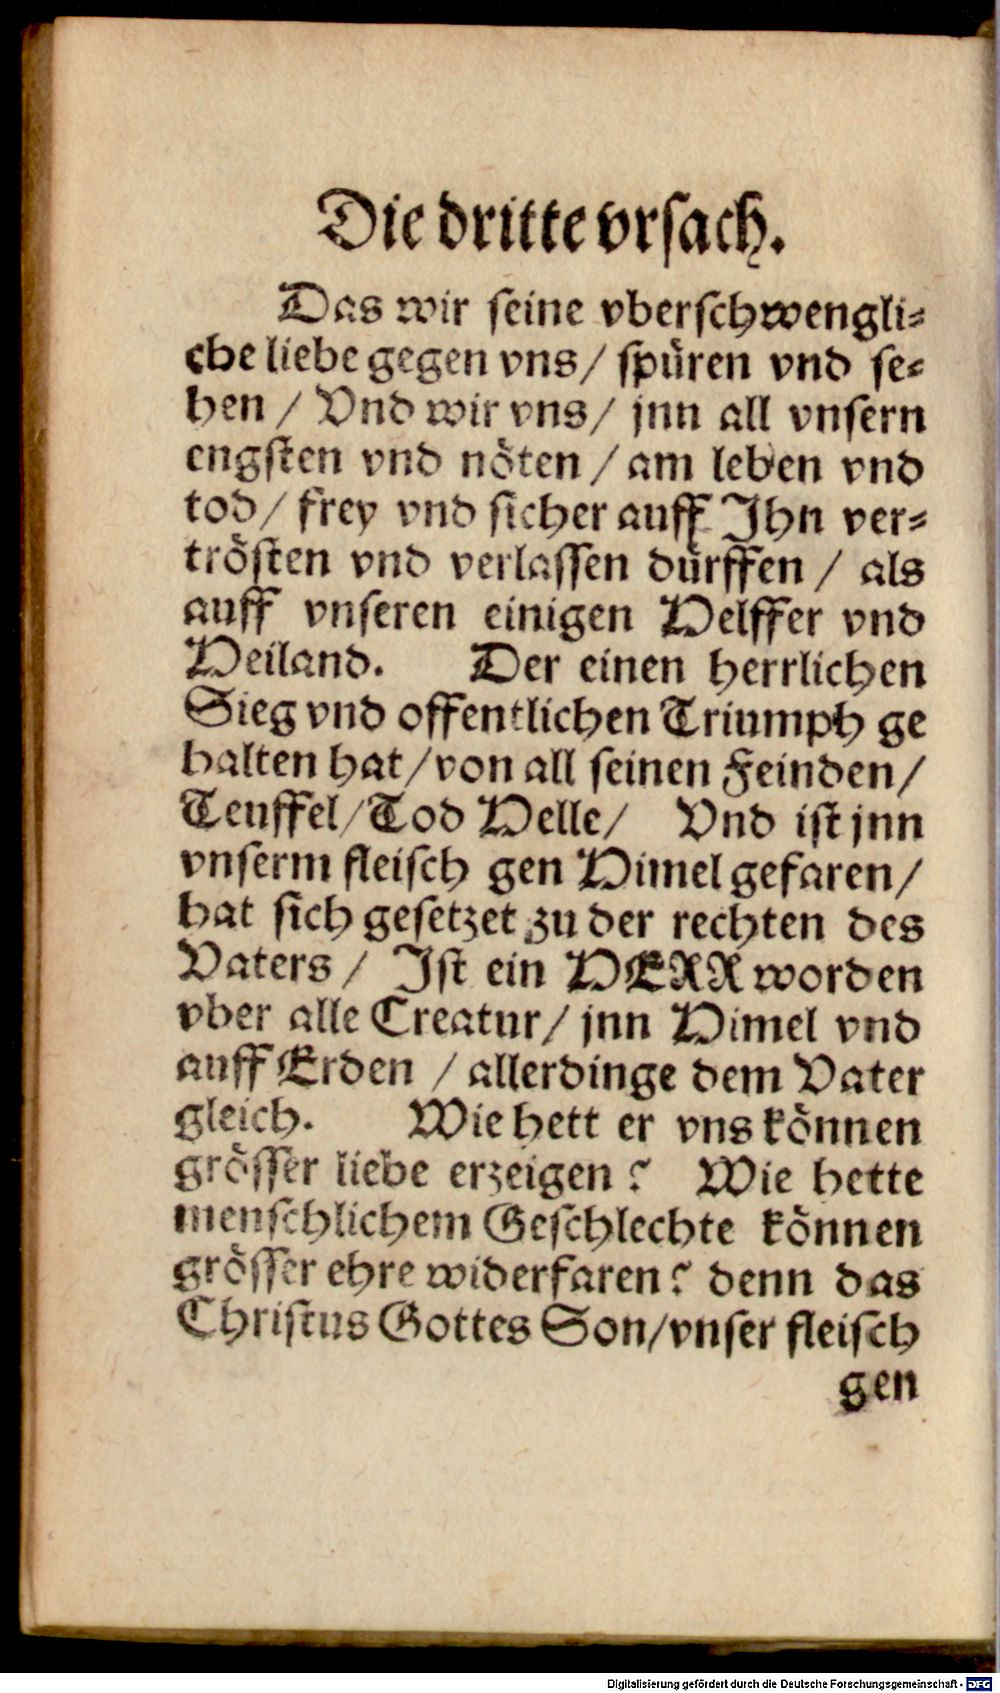 Die dritte vrsach.
Das wir seine vberschwengli=
che liebe gegen vns/ spüren vnd se=
hen / Vnd wir vns/ jnn all vnsern
engsten vnd nöten / am leben vnd
tod/ frey vnd sicher auff Ihn ver=
trösten vnd verlassen dürffen / als
auff vnseren einigen Helffer vnd
Heiland. Der einen herrlichen
Sieg vnd offentlichen Triumph ge
halten hat/ von all seinen Feinden/
Teuffel/ Tod Helle/ Vnd ist jnn
vnserm fleisch gen Himel gefaren/
hat sich gesetzet zu der rechten des
Vaters / Ist ein HERR worden
vber alle Creatur/ jnn Himel vnd
auff Erden / allerdinge dem Vater
gleich. Wie hett er vns können
grösser liebe erzeigen? Wie hette
menschlichem Geschlechte können
grösser ehre widerfaren? denn das
Christus Gottes Son/ vnser fleisch
gen
Digitalisierung gefördert durch die Deutsche Forschungsgemeinschaft - DFG